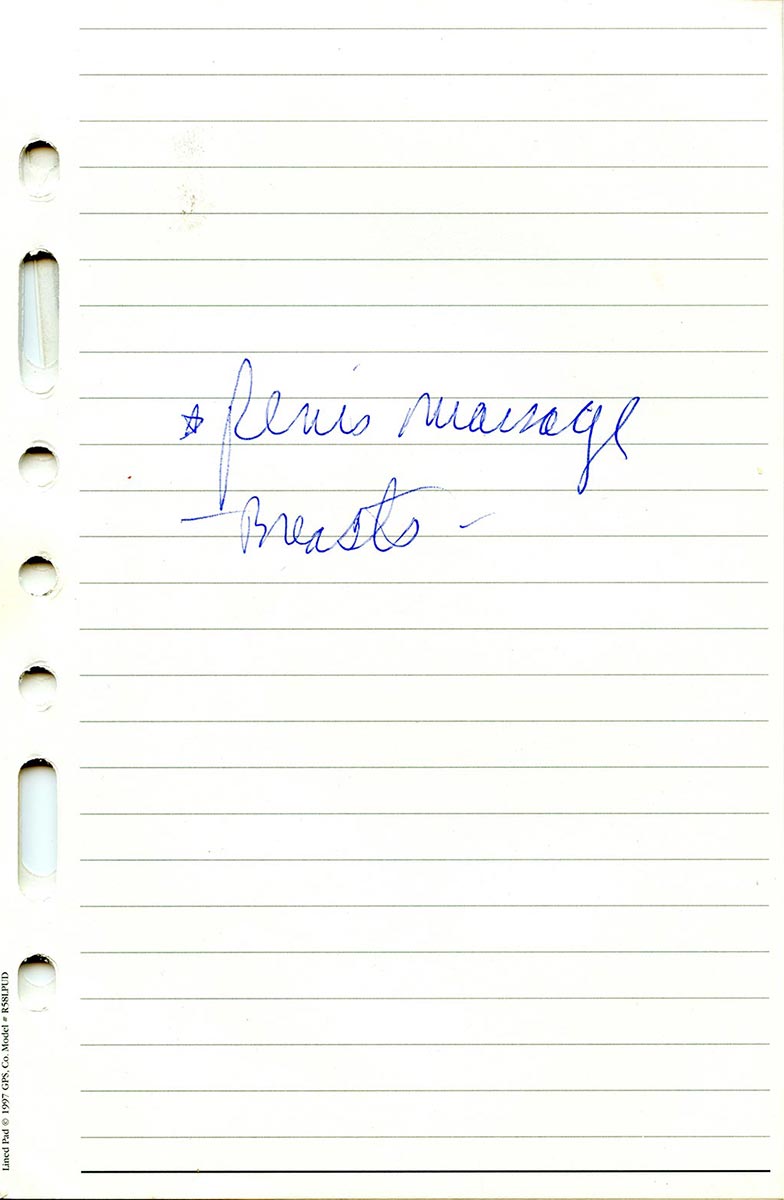 ☆ Penis massage
- Breasts -
Lined Pad © 1997 GPS, Co. Model # R58LPUD